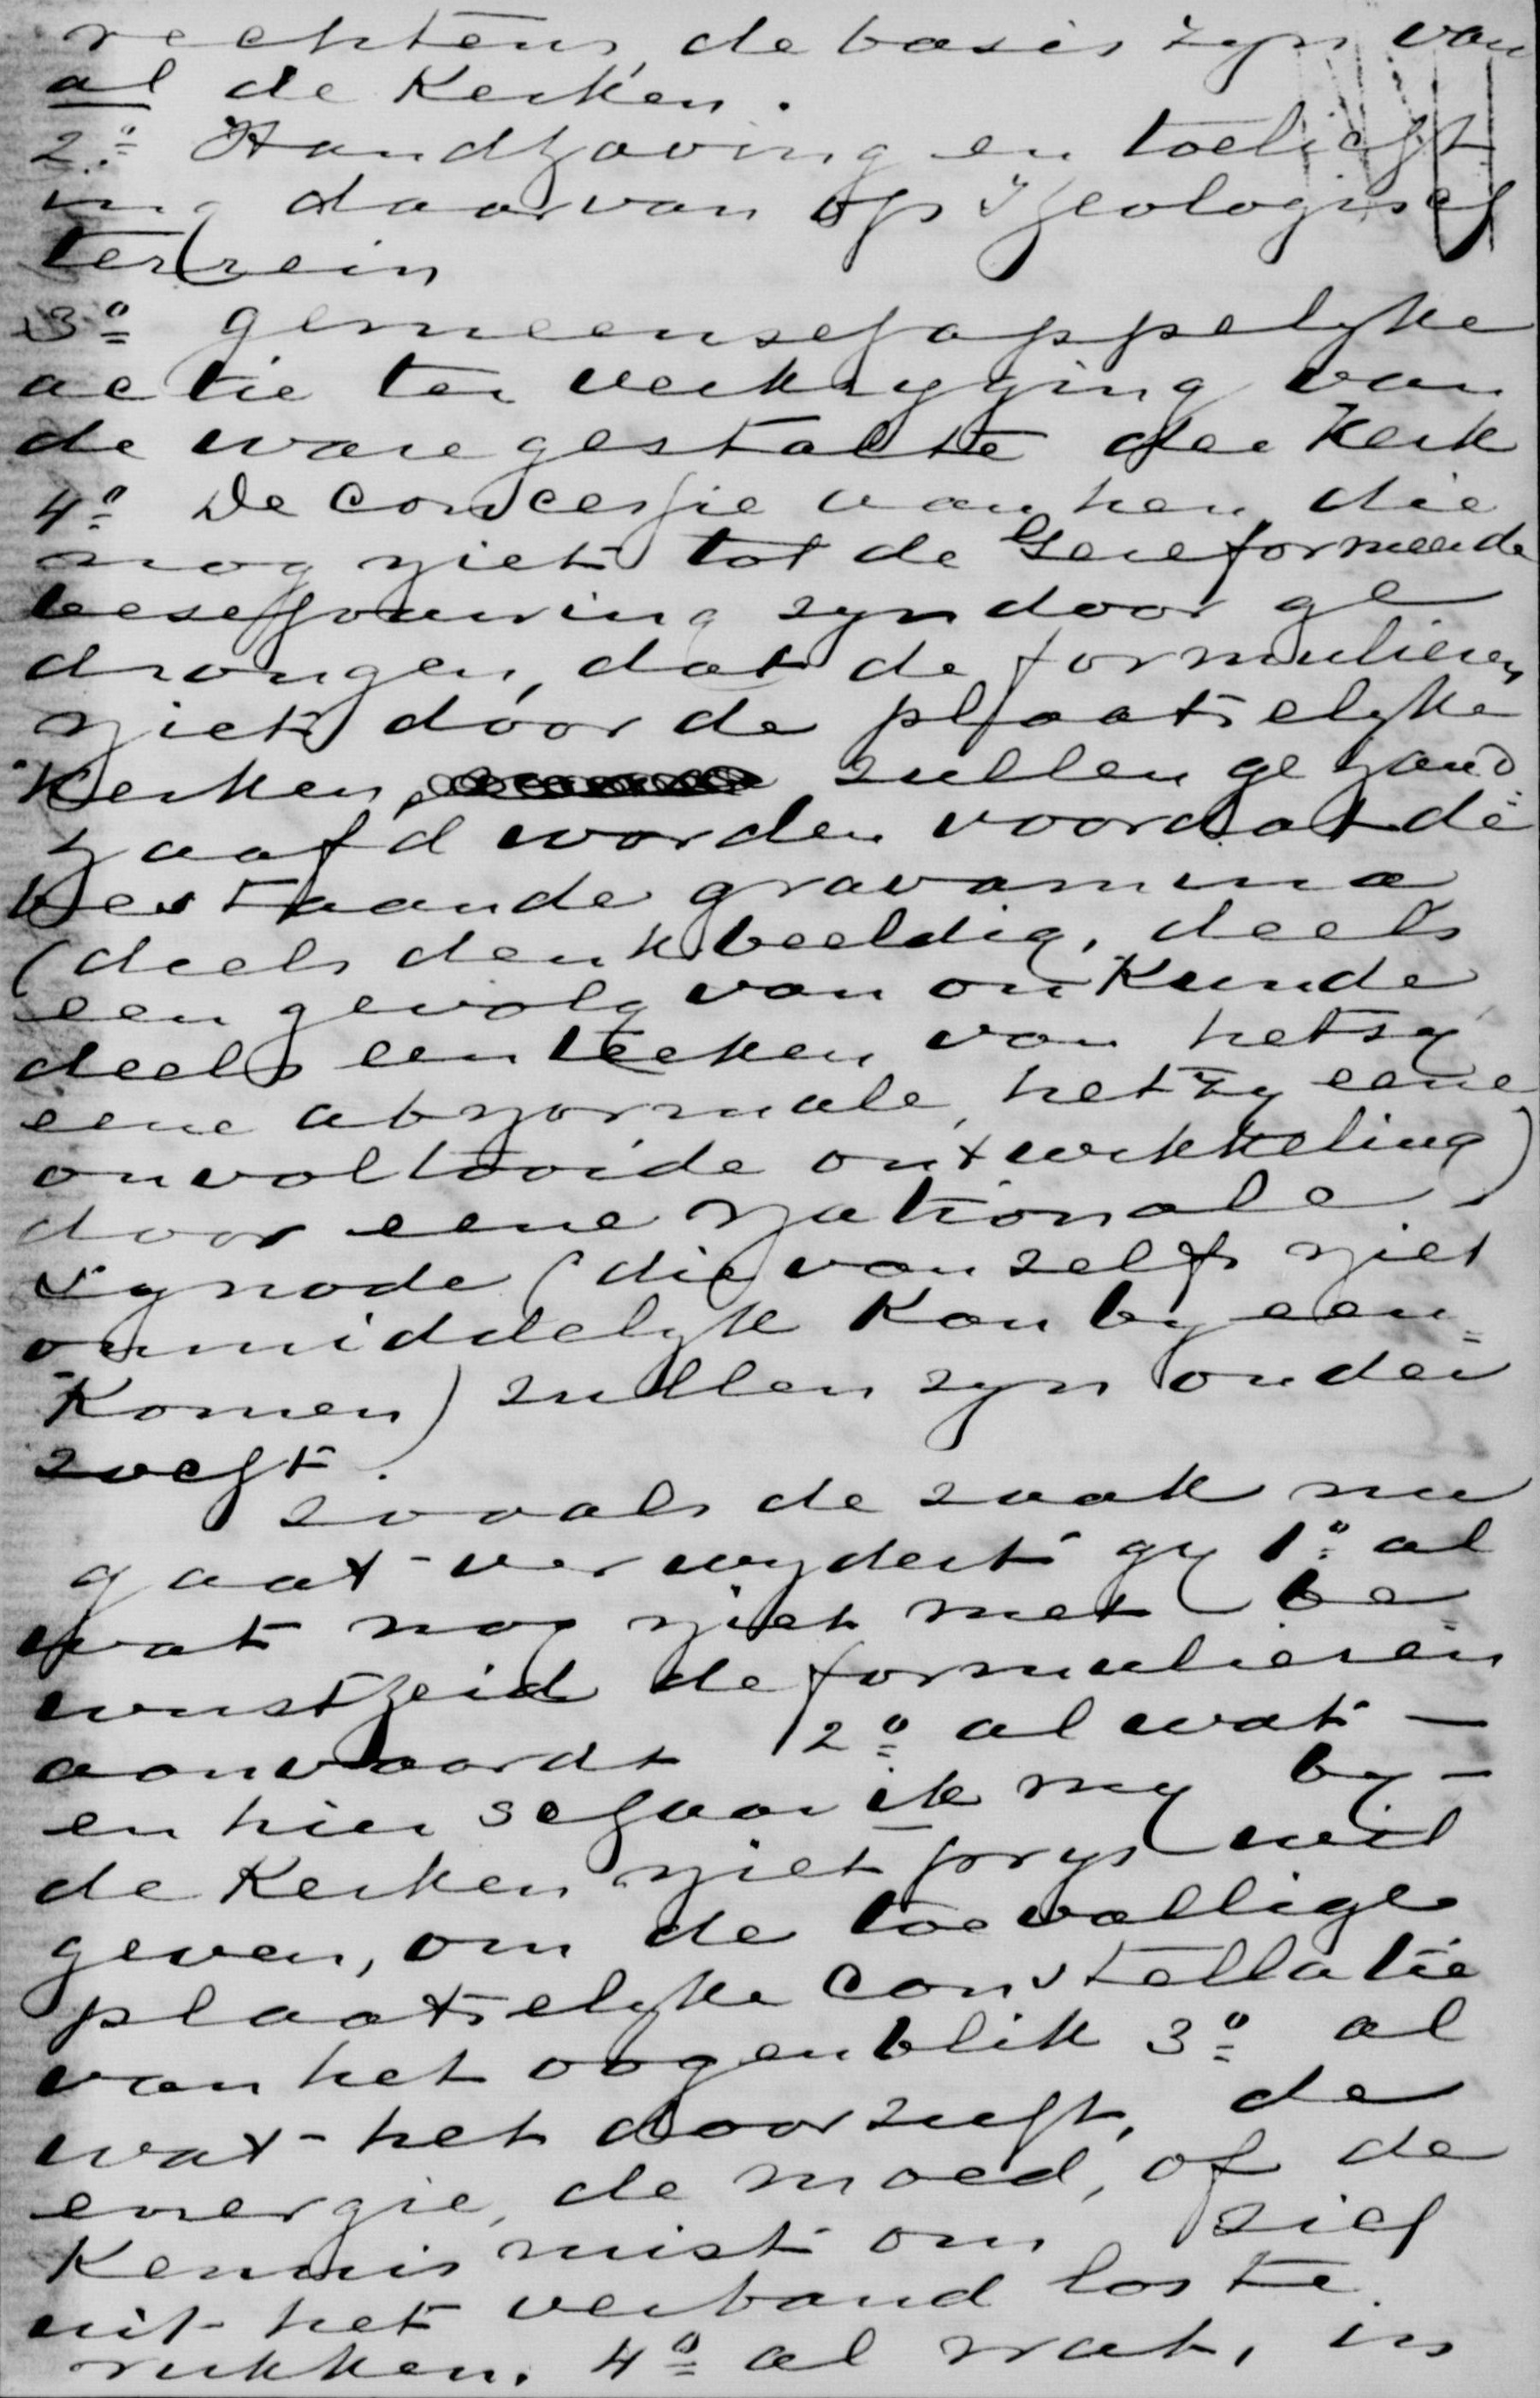 rechtens, de basis zyn van
al de Kerken.
2.o Handhaving en toelicht
ing daarvan op Theologisch
terrein
3o gemeenschappelyke
actie ter verkryging van
de ware gestalte der Kerk
4o De concessie van hen die
nog niet tot de Gereformeerde
beschouwing zyn door ge
drongen, dat de formulieren
niet door de plaatselyke
Kerken, zullen gehand=
haafd worden voordat de
bestaande gravamina
(deels denkbeeldig, deels
een gevolg van onkunde
deels een teeken van hetzy
eene abnormale, hetzy eene
onvoltooide ontwikkeling)
door eene nationale
synode (die vanzelf niet
onmiddelyk Kan by een=
Komen) zullen zyn onder
zocht.
zooals de zaak nu
gaat - verwydert gy 1o al
wat nog niet met be=
wustheid de formulieren
aanvaardt 2o al wat —
en hier schaar ik my by —
de Kerken niet prys wil
geven, om de toevallige
plaatselyke constellatie
van het oogenblik 3o al
wat - het doorzicht, de
energie, de moed, of de
Kennis mist om zich
uit het verband los te
rukken. 4o al wat, in